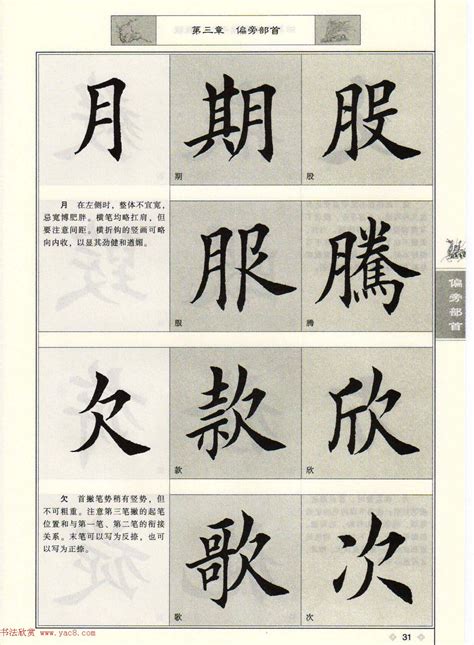 第三章 偏旁部首
月 期 股
期 股
月 在左侧时，整体不宜宽，
忌宽博肥胖。横笔均略扛肩，但
要注意间距。横折钩的竖画可略
向内收，以显其劲健和遒媚。
服 騰
服 腾
偏旁部首
欠 款 欣
款 欣
欠 首撇笔势稍有竖势，但
不可粗重。注意第三笔撇的起笔
位置和与第一笔、第二笔的衔接
关系。末笔可以写为反捺，也可
以写为正捺。
歌 次
歌 次
书法欣赏 www.yac8.com
31